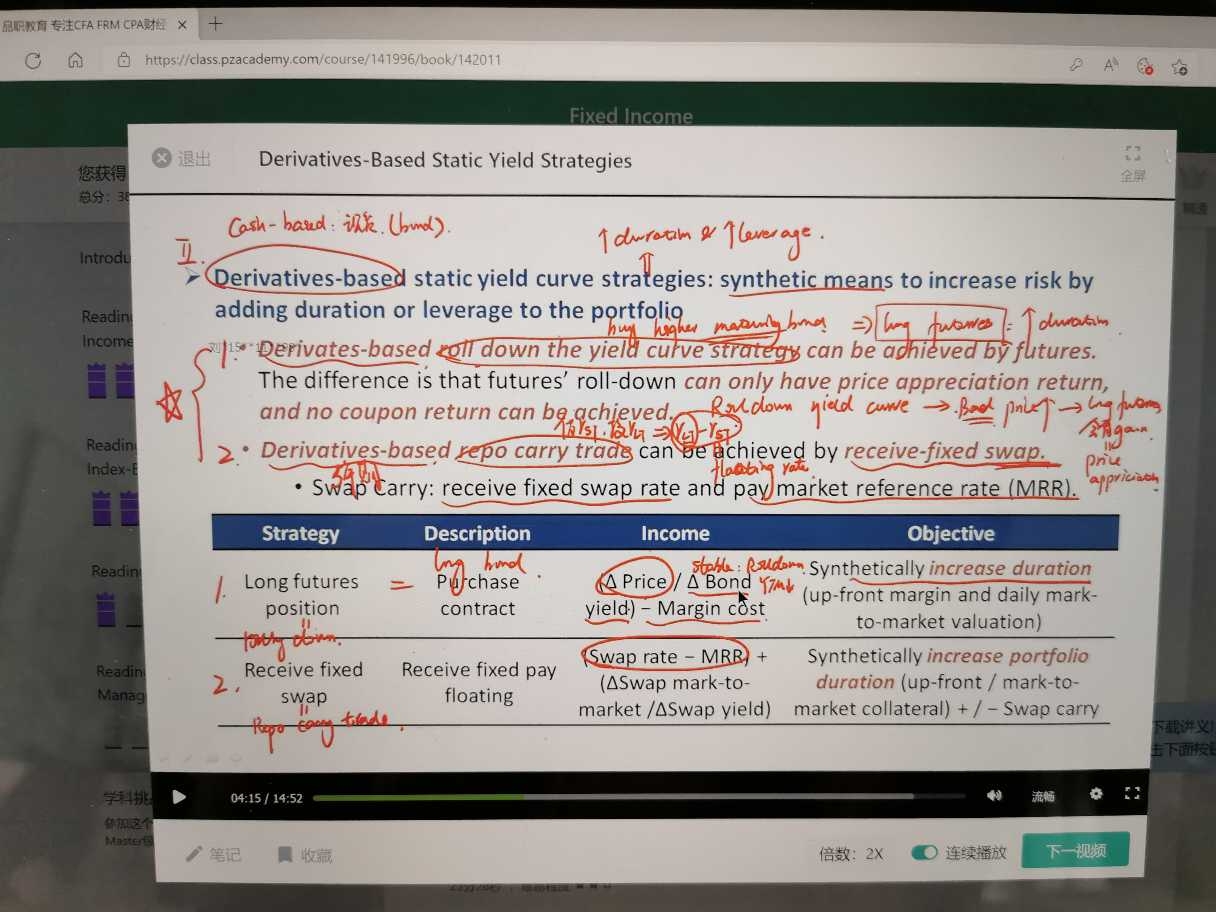 品职教育 专注CFA FRM CPA财经
https://class.pzacademy.com/course/141996/book/142011
Fixed Income
退出
Derivatives-Based Static Yield Strategies
全屏
您获得
总分：38
Introdu
Reading
Income
Readin
Index-E
Readin
Readin
Manag
学科挑
参加这个
Master
Cash-based: (bond).
↑ duration & ↑ leverage.
II.
➢ Derivatives-based static yield curve strategies: synthetic means to increase risk by
adding duration or leverage to the portfolio
buy higher maturity bond ⇒ long futures = ↑ duration
1. • Derivates-based roll down the yield curve strategy can be achieved by futures.
The difference is that futures’ roll-down can only have price appreciation return,
and no coupon return can be achieved.
Roll down yield curve → Bond price↑ → long futures
gain
price
appriciation
2. • Derivatives-based repo carry trade can be achieved by receive-fixed swap.
floating rate.
• Swap Carry: receive fixed swap rate and pay market reference rate (MRR).
Strategy Description Income Objective
long bond.
stable: Rolldown
1. Long futures = Purchase (Δ Price / Δ Bond Synthetically increase duration
position contract yield) – Margin cost (up-front margin and daily mark-
to-market valuation)
2. Receive fixed Receive fixed pay (Swap rate – MRR) + Synthetically increase portfolio
swap floating (ΔSwap mark-to- duration (up-front / mark-to-
market /ΔSwap yield) market collateral) + / – Swap carry
Repo carry trade.
04:15 / 14:52
流畅
笔记
收藏
倍数：2X
连续播放
下一视频
下载讲义
击下面按钮